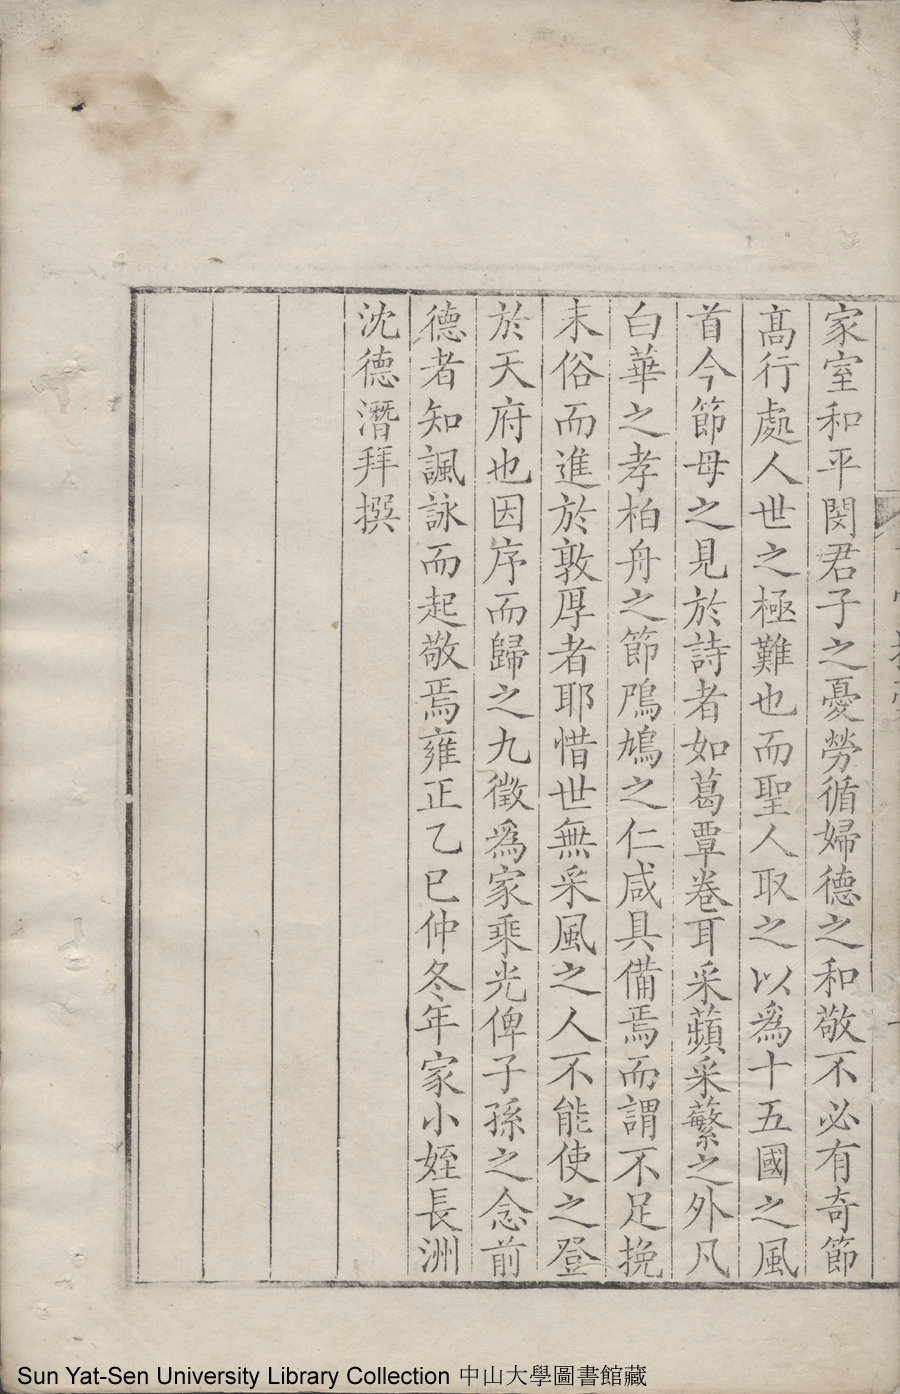 家室和平閔君子之憂勞循婦德之和敬不必有奇節
髙行處人世之極難也而聖人取之以爲十五國之風
首今節母之見於詩者如葛覃卷耳采蘋采蘩之外凡
白華之孝柏舟之節鳲鳩之仁咸具備焉而謂不足挽
末俗而進於敦厚者耶惜世無采風之人不能使之登
於天府也因序而歸之九徵爲家乘光俾子孫之念前
德者知諷詠而起敬焉雍正乙巳仲冬年家小姪長洲
沈德潛拜撰
Sun Yat-Sen University Library Collection 中山大學圖書館藏